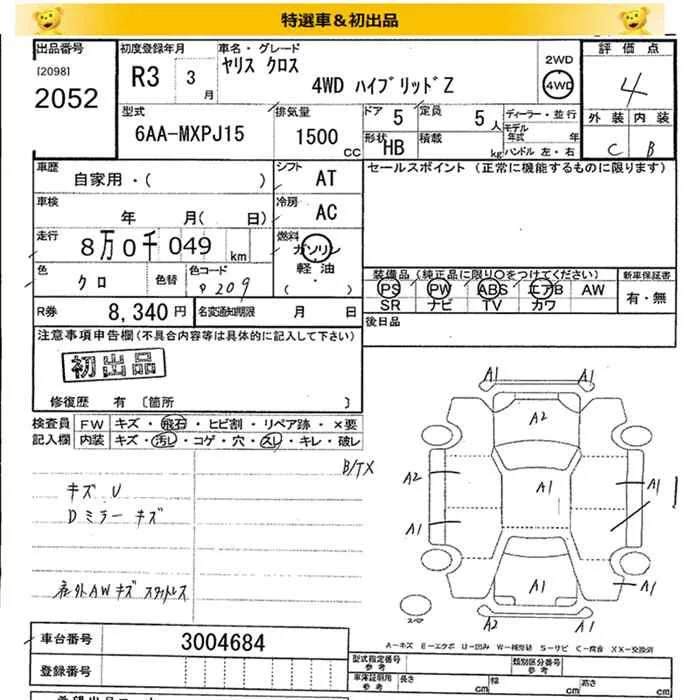 特選車＆初出品
出品番号
[2098]
2052
初度登録年月
R3 3月
車名・グレード
ヤリス クロス
4WD ハイブリッドZ
2WD
4WD
評価点
4
外装 内装
C B
型式
6AA-MXPJ15
排気量
1500 CC
ドア 5
定員 5人
形状 HB
積載 kg
ディーラー・並行
モデル年式 年
ハンドル 左・右
車歴
自家用・( )
シフト AT
セールスポイント (正常に機能するものに限ります)
車検
年 月( 日)
冷房 AC
走行
8万0千049 km
燃料
ガソリン
軽油
( ・ )
色
クロ
色替
色コード
209
装備品 (純正品に限り○をつけてください)
PS PW ABS エアB AW
SR ナビ TV カワ
新車保証書
有・無
R券 8,340円
名変通知期限 月 日
後日品
注意事項申告欄(不具合内容等は具体的に記入して下さい)
初出品
修復歴 有 〔箇所 〕
検査員記入欄
FW キズ・飛石・ヒビ割・リペア跡・×要
内装 キズ・汚レ・コゲ・穴・スレ・キレ・破レ
B/TX
キズ U
Dミラー キズ
社外AWキズ スタッドレス
A1 A1
A2
A2 A1 A1
A1
A1 A1
A2 A1
スペア
A－キズ E－エクボ U－凹み W－補修跡 S－サビ C－腐食 XX－交換済
車台番号 3004684
登録番号
型式指定番号
参考
類別区分番号
参考
車庫証明用
参考
長さ cm
幅 cm
高さ cm